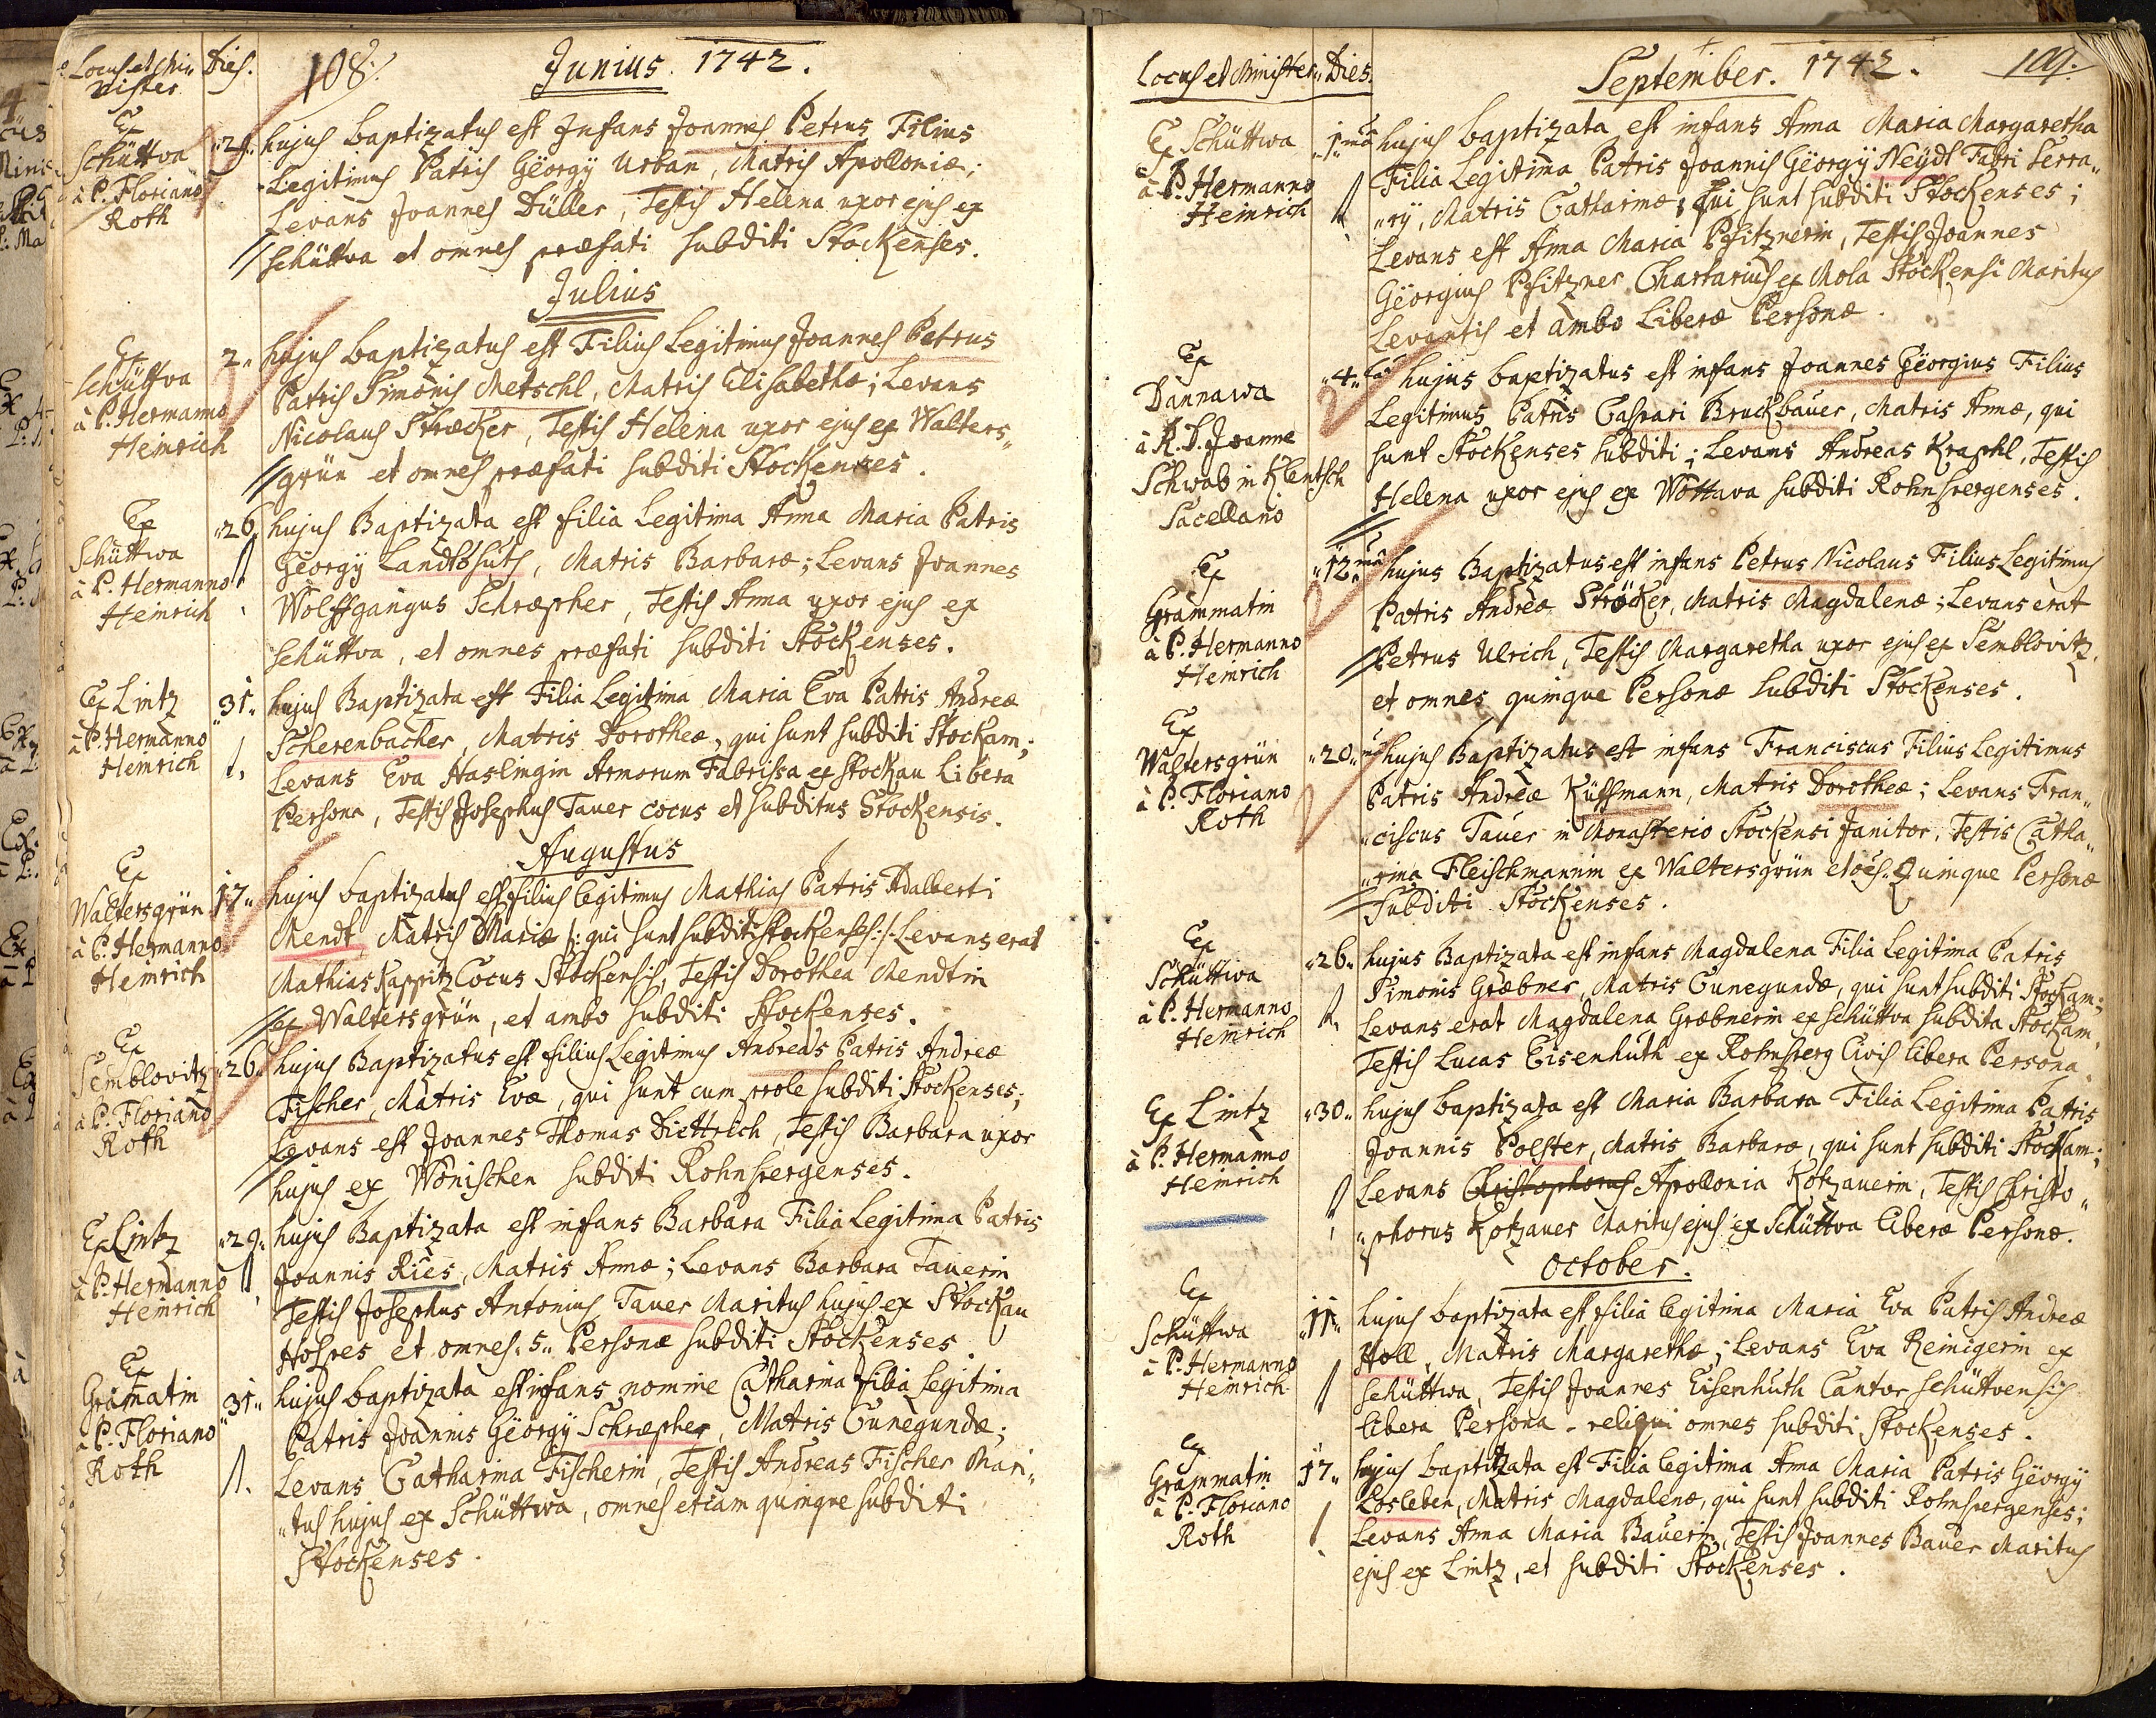 Locus et Mi„
nister
Dies.
108.
Junius. 1742.
Ex
Schüttwa
à P. Floriano
Roth
29.
hujus baptizatus est Infans Joannes Petrus Filius
Legitimus Patris Geörgÿ Urban, Matris Apolloniæ;
Levans Joannes Düller, Testis Helena uxor ejus ex
Schüttwa et omnes præfati subditi Stockenses.
Julius
Ex
Schüttwa
à P. Hermanno
Heinrich
2.
hujus baptizatus est Filius Legitimus Joannes Petrus
Patris Simonis Metschl, Matris Elisabethæ; Levans
Nicolaus Stræcker, Testis Helena uxor ejus ex Walters„
grün et omnes præfati subditi Stockenses.
Ex
Schüttwa
à P. Hermanno
Heinrich
26
hujus Baptizata est filia Legitima Anna Maria Patris
Geörgÿ Landtshuts, Matris Barbaræ; Levans Joannes
Wolffgangus Schræpher, Testis Anna uxor ejus ex
Schüttva, et omnes præfati subditi Stockenses.
Ex Lintz
à P. Hermanno
Heinrich
31.
hujus Baptizata est Filia Legitima Maria Eva Patris Andreæ
Scherenbacher, Matris Dorotheæ, qui sunt subditi Stockam;
Levans Eva Haslingin Armorum Fabrissa ex Stockau Libera
Persona, Testis Josephus Tauer cocus et subditus Stockensis.
Augustus
Ex
Waltersgrün
à P. Hermanno
Heinrich
17.
hujus baptizatus est filius legitimus Mathias Patris Adalberti
Mendt, Matris Mariæ /: qui sunt subditi Stockenses :/ Levans erat
Mathias Kappitz Cocus Stockensis, Testis Dorothea Mendtin
ex Waltersgrün, et ambo subditi Stockenses.
Ex
Semblovitz
à P. Floriano
Roth
26.
hujus Baptizatus est filius Legitimus Andreas Patris Andreæ
Fischer, Matris Evæ, qui sunt cum prole subditi Stockenses;
Levans est Joannes Thomas Diettrich, Testis Barbara uxor
hujus ex Wonischen subditi Rohnspergenses.
Ex Lintz
à P. Hermanno
Heinrich
29.
hujus Baptizata est infans Barbara Filia Legitima Patris
Joannis Ries, Matris Annæ; Levans Barbara Tauerin
Testis Josephus Antonius Tauer Maritus hujus ex Stockau
Hospes et omnes 5. Personæ subditi Stockenses.
Ex
Gramatin
à P. Floriano
Roth
31.
hujus baptizata est infans nomine Catharina filia legitima
Patris Joannis Geörgÿ Schræpher, Matris Cunegundæ;
Levans Catharina Fischerin, Testis Andreas Fischer Mari„
„tus hujus ex Schüttwa, omnes etiam quinque subditi
Stockenses.
Locus et Minister
Dies.
September. 1742.
109.
Ex Schüttwa
à P. Hermanno
Heinrich
1ma
hujus baptizata est infans Anna Maria Margaretha
Filia Legitima Patris Joannis Geörgÿ Neÿdl Fabri Serra„
„rÿ, Matris Catharinæ, qui sunt subditi Stockenses;
Levans est Anna Maria Pfitznerin, Testis Joannes
Geörgius Pfitzner Chartarius ex Mola Stockensi Maritus
Levantis et ambo Liberæ Personæ.
Ex
Dannawa
à R. D. Joanne
Schwab in Klentsch
Sacellano
4ta
hujus baptizatus est infans Joannes Geörgius Filius
Legitimus Patris Caspari Bruckbauer, Matris Annæ, qui
sunt Stockenses subditi; Levans Andreas Kraphl, Testis
Helena uxor ejus ex Wottava subditi Rohnspergenses.
Ex
Grammatin
à P. Hermanno
Heinrich
12ma
hujus Baptizatus est infans Petrus Nicolaus Filius Legitimus
Patris Andreæ Ströcker, Matris Magdalenæ; Levans erat
Petrus Ulrich, Testis Margaretha uxor ejus ex Semblovitz,
et omnes quinque Personæ subditi Stockenses.
Ex
Waltersgrün
à P. Floriano
Roth
20.
hujus Baptizatus est infans Franciscus Filius Legitimus
Patris Andreæ Küffmann, Matris Dorotheæ; Levans Fran„
„ciscus Tauer in Monasterio Stockensi Janitor, Testis Catha„
„rina Fleischmannin ex Waltersgrün et oes. Quinque Personæ
Subditi Stockenses.
Ex
Schüttwa
à P. Hermanno
Heinrich
26.
hujus Baptizata est infans Magdalena Filia Legitima Patris
Simonis Græbner, Matris Cunegundæ, qui sunt subditi Stockam;
Levans erat Magdalena Græbnerin ex Schüttva subdita Stockam,
Testis Lucas Eisenhuth ex Rohnsperg Civis libera Persona.
Ex Lintz
à P. Hermanno
Heinrich
30.
hujus baptizata est Maria Barbara Filia Legitima Patris
Joannis Polster, Matris Barbaræ, qui sunt subditi Stockam;
Levans Christophorus Apollonia Kotzauerin, Testis Christo„
„phorus Kotzauer Maritus ejus ex Schüttva liberæ Personæ.
October.
Ex
Schüttwa
à P. Hermanno
Heinrich
11.
hujus baptizata est filia legitima Maria Eva Patris Andreæ
Holl, Matris Margarethæ; Levans Eva Reinigerin ex
Schüttwa, Testis Joannes Eisenhuth Cantor Schüttvensis
libera Persona. reliqui omnes subditi Stockenses.
Ex
Grammatin
à P. Floriano
Roth
17.
hujus baptizata est Filia legitima Anna Maria Patris Geörgÿ
Losleben, Matris Magdalenæ, qui sunt subditi Rohnspergenses;
Levans Anna Maria Bauerin, Testis Joannes Bauer Maritus
ejus ex Lintz, et subditi Stockenses.